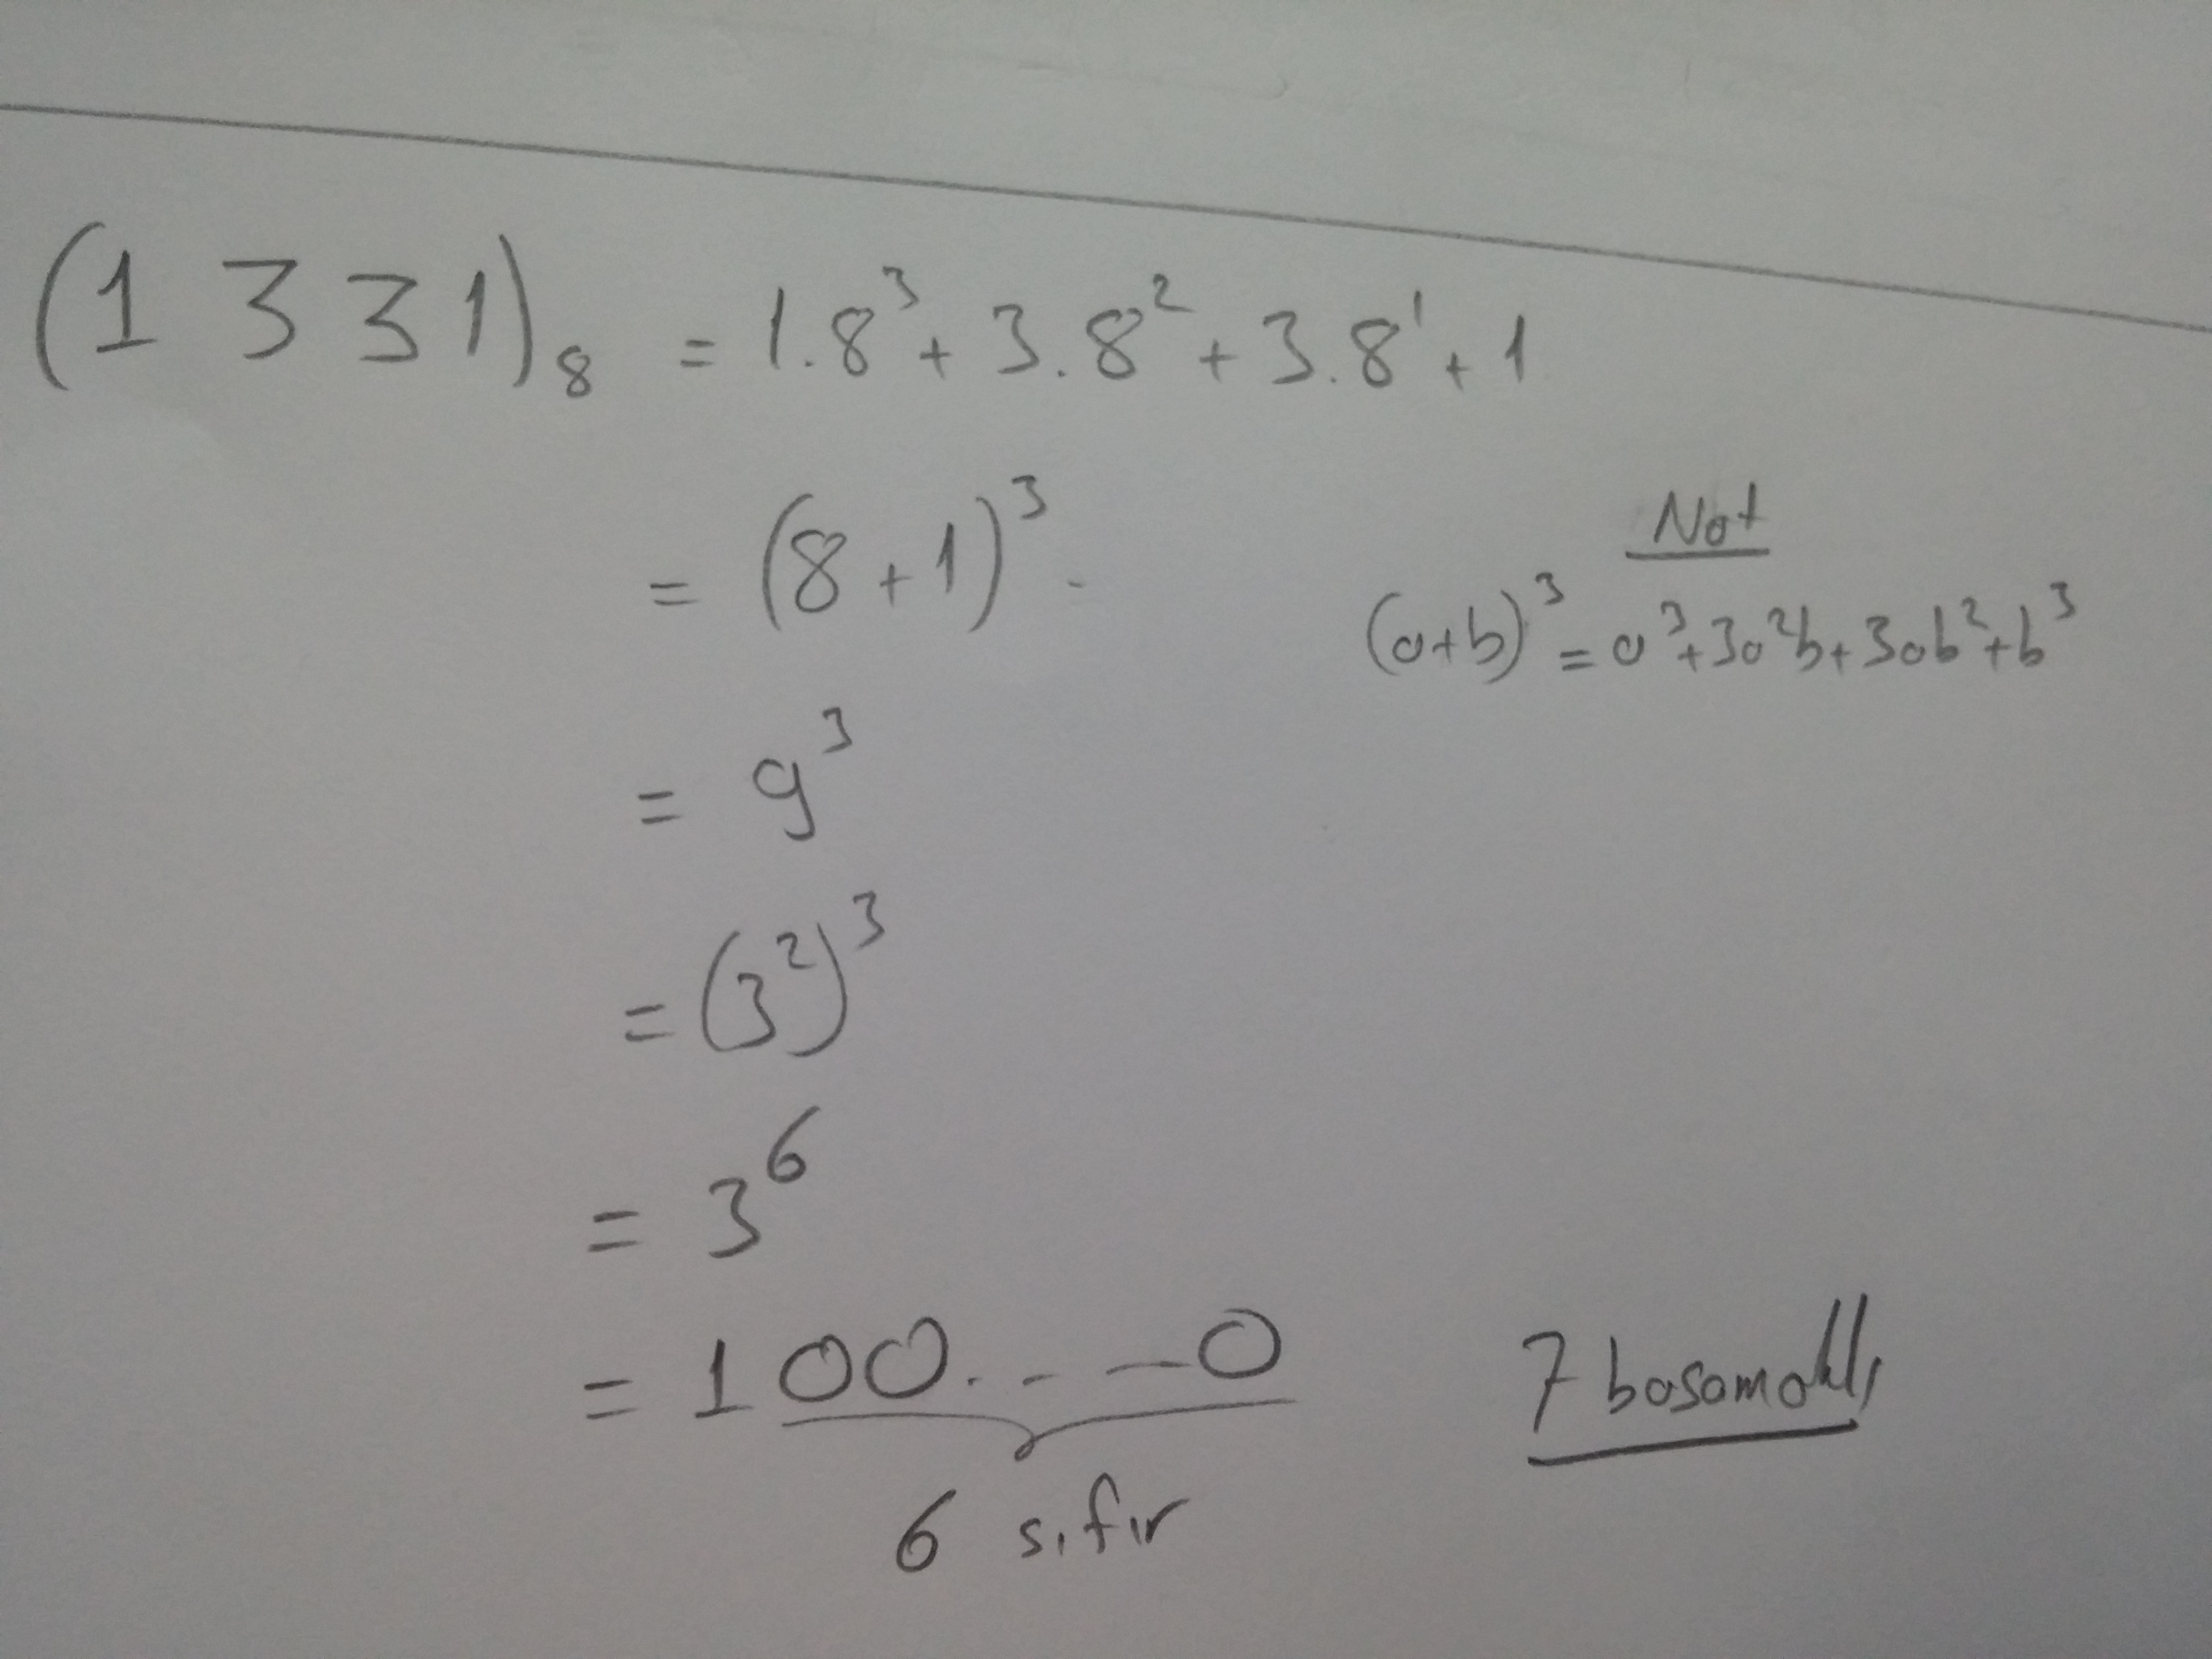 (1 3 3 1)₈ = 1.8³ + 3.8² + 3.8¹ + 1
= (8 + 1)³
Not
(a+b)³ = a³+3a²b+3ab²+b³
= 9³
= (3²)³
= 3⁶
= 1 00. - - - 0
7 basamaklı
6 sıfır